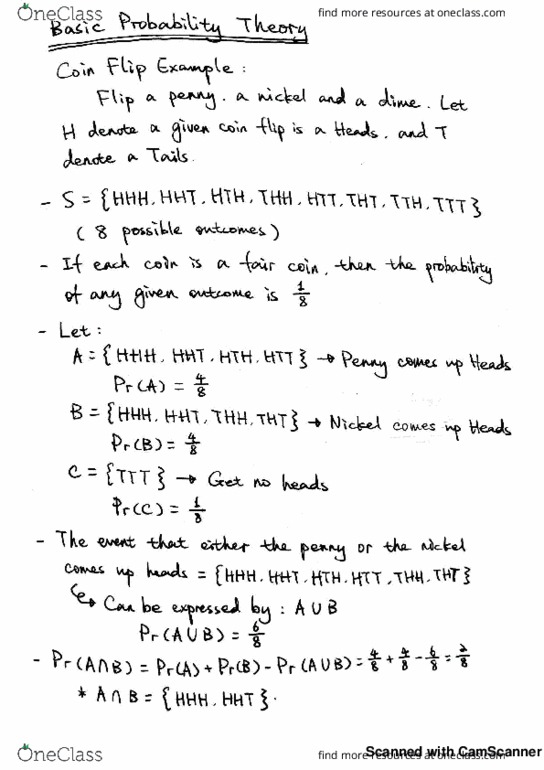 OneClass
find more resources at oneclass.com
Basic Probability Theory
Coin Flip Example :
Flip a penny, a nickel and a dime. Let
H denote a given coin flip is a Heads, and T
denote a Tails.
- S = {HHH, HHT, HTH, THH, HTT, THT, TTH, TTT}
( 8 possible outcomes )
- If each coin is a fair coin, then the probability
of any given outcome is 1/8
- Let :
A = {HHH, HHT, HTH, HTT} → Penny comes up Heads
Pr(A) = 4/8
B = {HHH, HHT, THH, THT} → Nickel comes up Heads
Pr(B) = 4/8
C = {TTT} → Get no heads
Pr(C) = 1/8
- The event that either the penny or the nickel
comes up heads = {HHH, HHT, HTH, HTT, THH, THT}
↳ Can be expressed by : A ∪ B
Pr(A ∪ B) = 6/8
- Pr(A ∩ B) = Pr(A) + Pr(B) - Pr(A ∪ B) = 4/8 + 4/8 - 6/8 = 2/8
* A ∩ B = {HHH, HHT}.
OneClass
find more resources at oneclass.com
Scanned with CamScanner